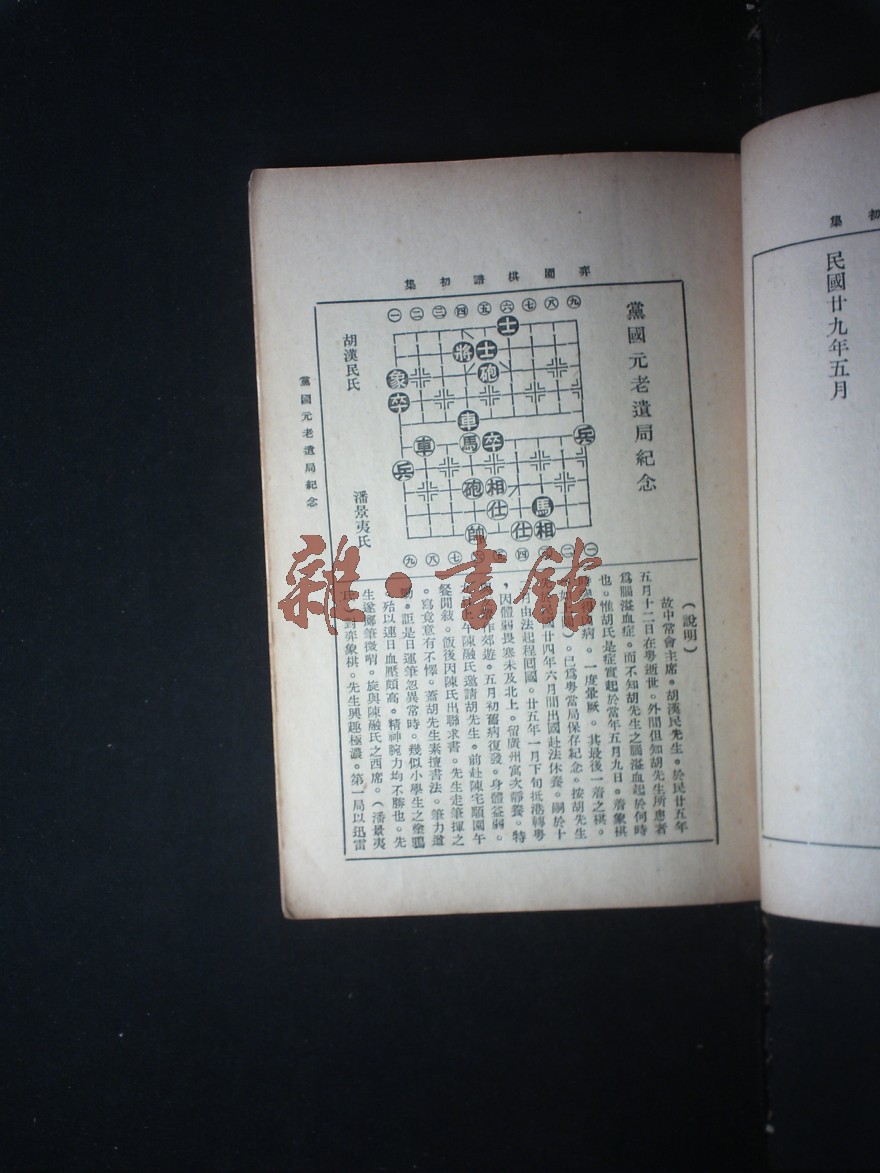 初集
民國廿九年五月
弈園棋譜初集
黨國元老遺局紀念
胡漢民氏
潘景夷氏
黨國元老遺局紀念
一二三四五六七八九
士
將士
砲
象
卒
車
車馬卒
兵
兵
砲相
仕
馬
帥仕相
九八七
四
二一
雜·書館
(說明)
故中常會主席。胡漢民先生。於民廿五年
五月十二日在粵逝世。外間但知胡先生所患者
為腦溢血症。而不知胡先生之腦溢血起於何時
也。惟胡氏是症實起於當年五月九日。着象棋
病。一度暈厥。其最後一着之棋。
。已為粵當局保存紀念。按胡先生
廿四年六月間出國赴法休養。嗣於十
由法起程囘國。廿五年一月下旬抵港轉粵
，因體弱畏寒未及北上。留廣州寓次靜養。特
作郊遊。五月初舊病復發。身體益弱。
上午陳融氏邀請胡先生。前赴陳宅顒園午
餐閒敍。飯後因陳氏出聯求書。先生走筆揮之
。寫竟意有不懌。蓋胡先生素擅書法。筆力遒
勁。詎是日運筆忽異常時。幾似小學生之塗鴉
殆以連日血壓頗高。精神腕力均不勝也。先
生遂擲筆微喟。旋與陳融氏之西席。(潘景夷
對弈象棋。先生興趣極濃。第一局以迅雷